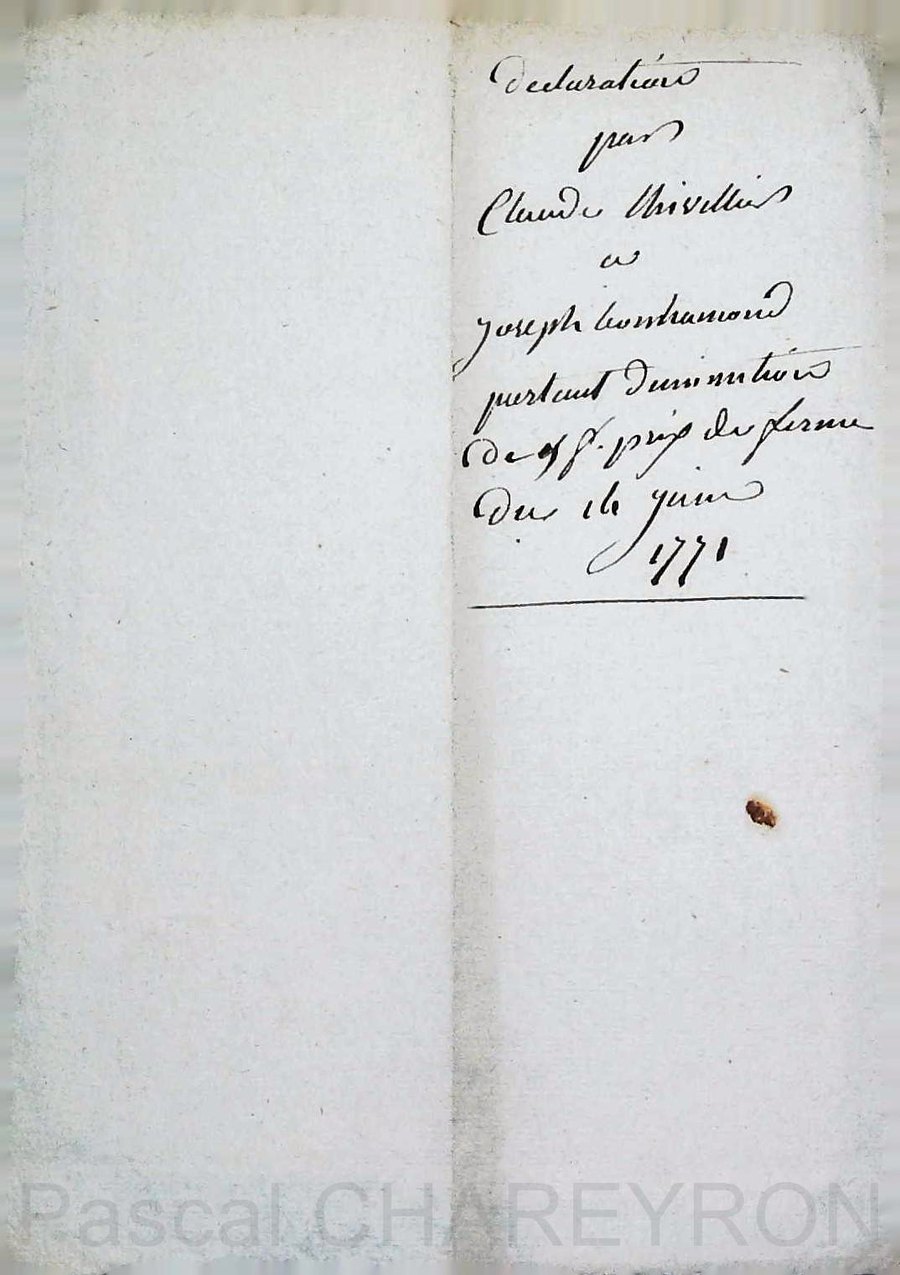 declaration
par
Claude thivillier
a
joseph bonhamond
portant diminution
de prix de ferme
du 14 juin
1771
Pascal CHAREYRON